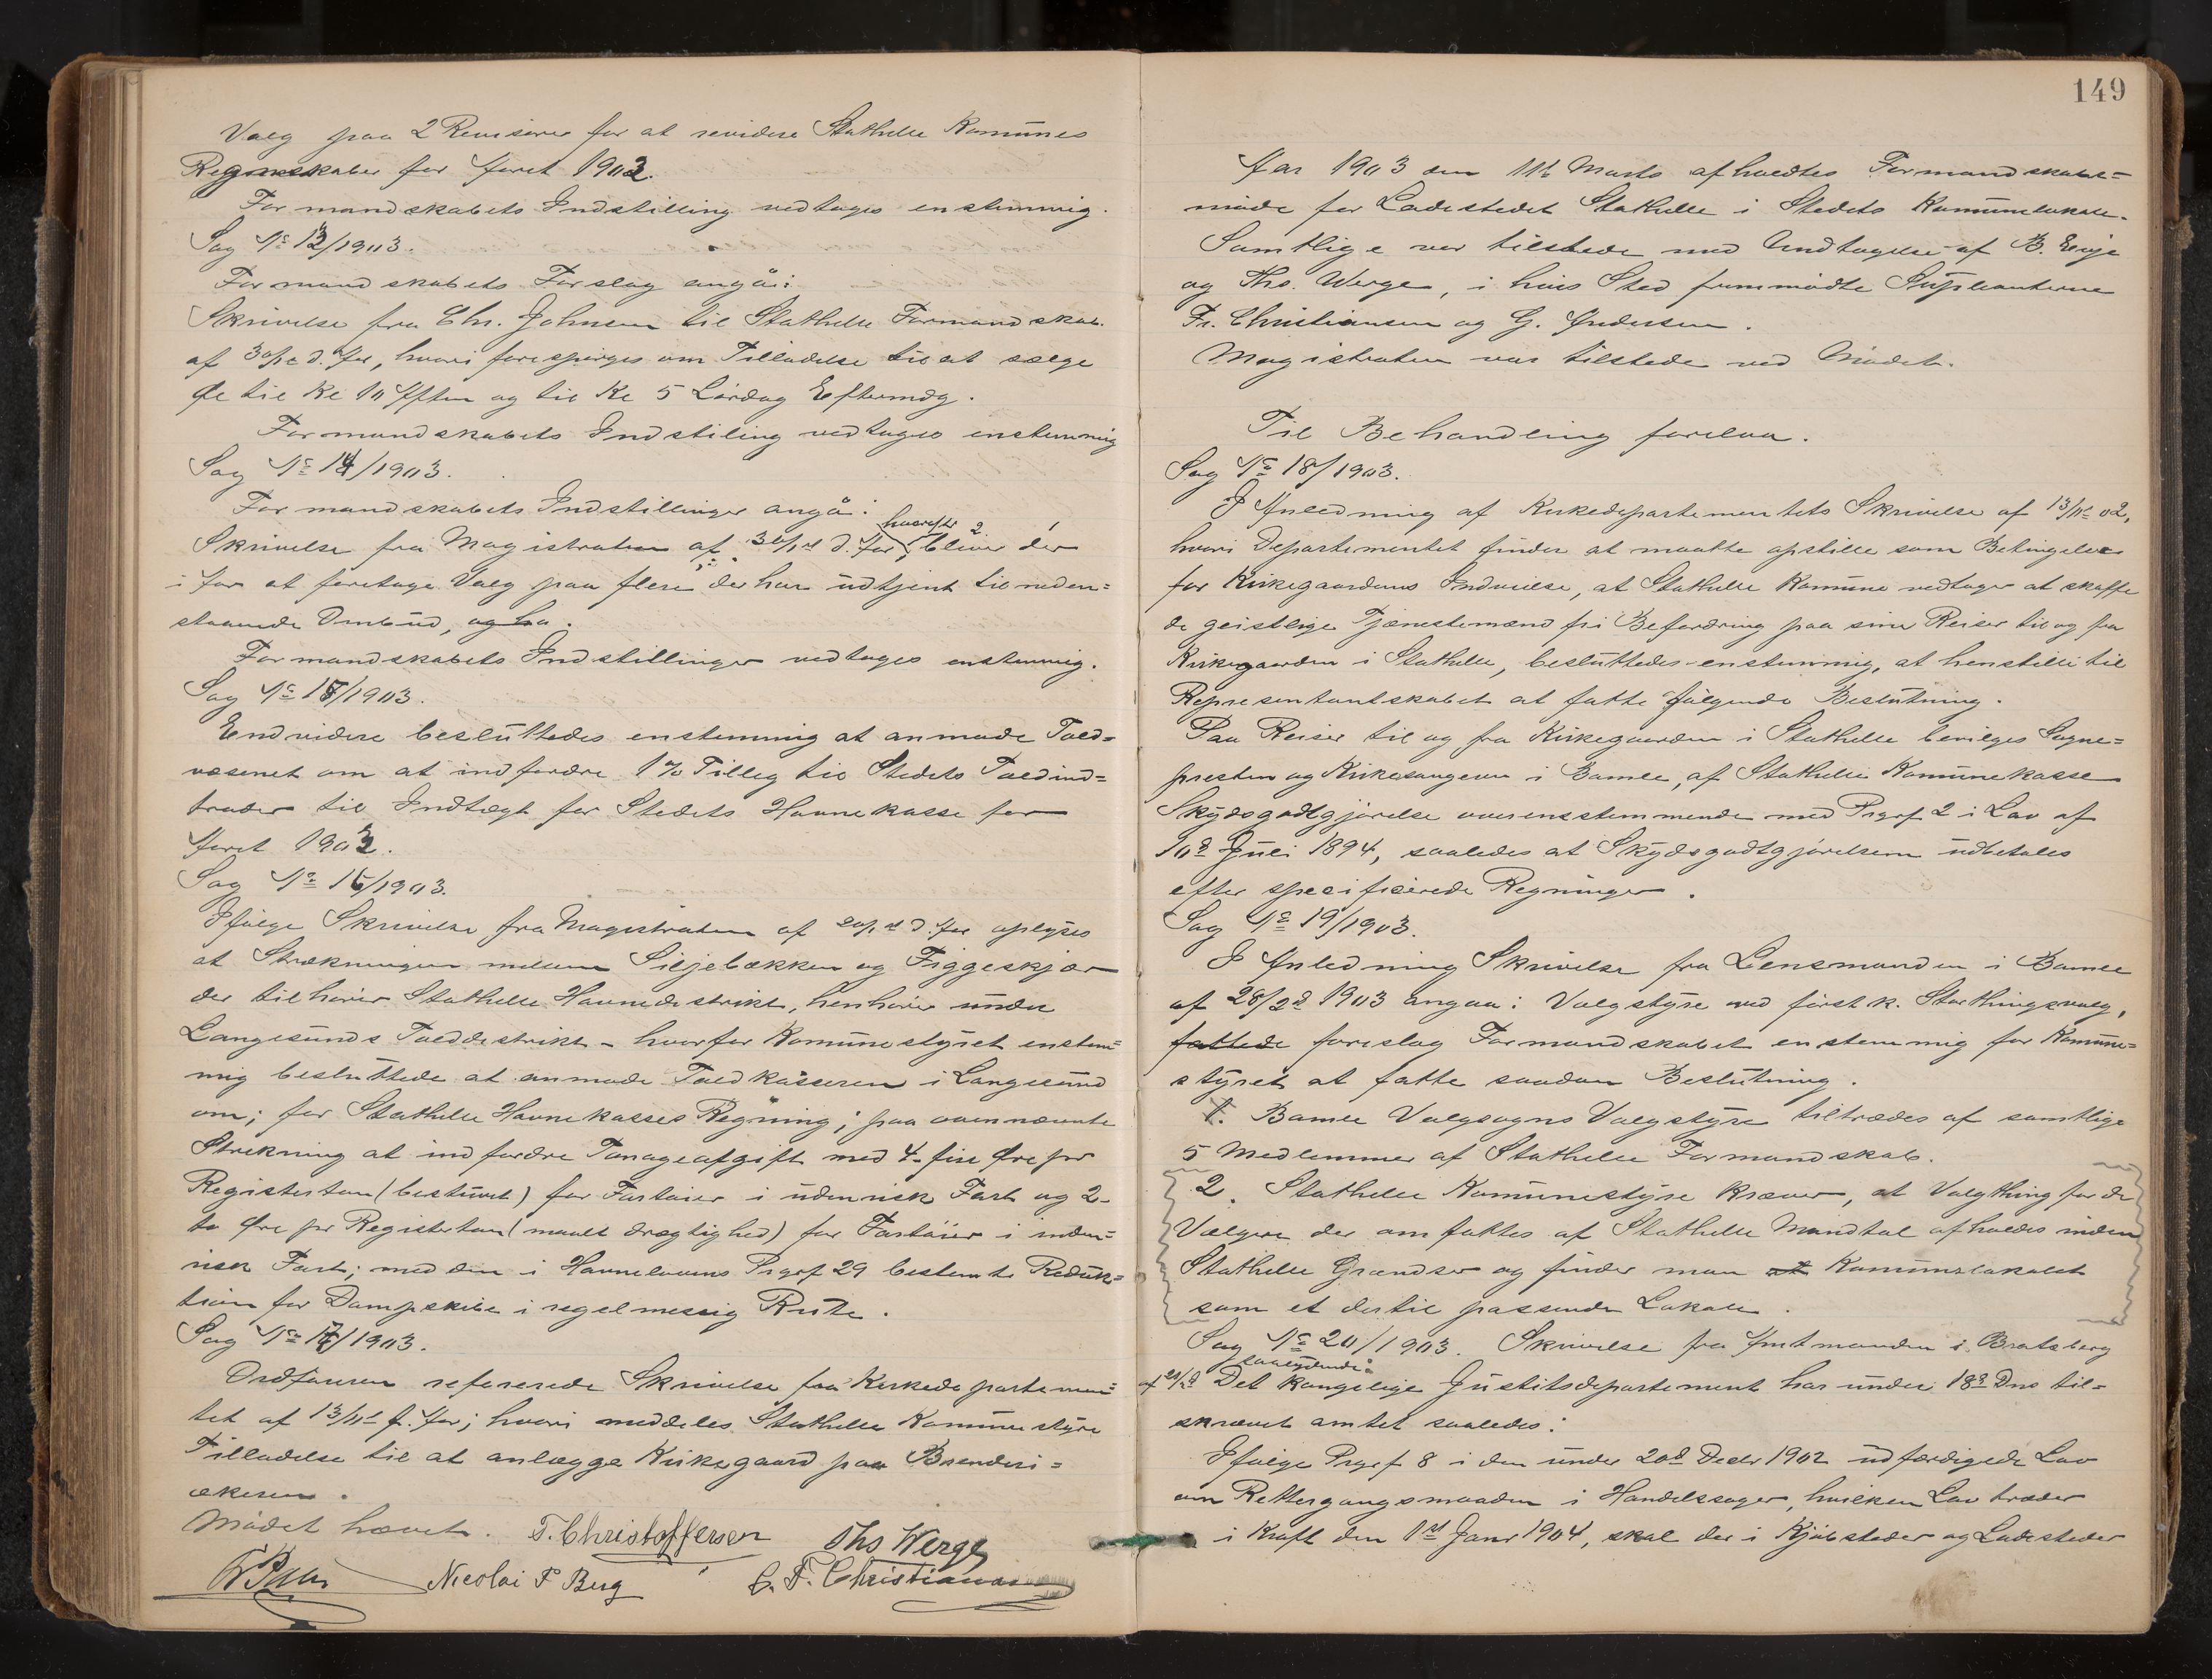 Valg paa 2 Revisorer for at revidere Stathelle Komunes
Regnskaber for Aaret 1902.
Formandskabets Indstilling vedtages enstemmig.
Sag No 13/1903.
Formandskabets Forslag angå:
Skrivelse fra Chr. Johnsen til Stathelle Formandskab
af 30/12 d. Aar, hvori forespørges om Tilladelse til at sælge
Øl til Kl 10 Aften og til Kl 5 Lørdag Eftermdg.
Formandskabets Indstiling vedtages enstemmig
Sag No 14/1903.
Formandskabets Indstillinger angå:
Skrivelse fra Magistraten af 30/1 d. Aar, hvorefter bliver der
i Aar at foretage Valg paa flere der har udtjent til neden-
staaende Ombud, og La.
Formandskabets Indstillinger vedtages enstemmig.
Sag No 15/1903.
Endvidere besluttedes enstemmig at anmode Told-
væsenet om at indfordre 1% Tilleg til Stedets Toldind-
trader til Indtægt for Stedets Havnekasse for
Aaret 1903.
Sag No 16/1903.
Ifølge Skrivelse fra Magistraten af 20/1 d. Aar oplyses
at Strækningen mellem Siljebækken og Figgeskjær
der tilhører Stathelle Havnedestrikt, henhører under
Langesunds Tolddestrikt - hvorfor Komunestyret enstem-
mig besluttede at anmode Toldkasseren i Langesund
om; for Stathelle Havnekasses Regning; paa ovennævnte
Strekning at indfordre Tonageafgift med 4-fire Øre pr
Registerton (bestuvet) for Fartøier i udenrisk Fart og 2-
to Øre pr Registerton (maalt drægtighed) for Fartøier i inden-
risk Fart; med den i Havnelovens Prgrf 29 bestemte Reduk-
tion for Dampskibe i regelmessig Rute.
Sag No 17/1903.
Ordføreren refererede Skrivelse fra Kirkedepartemen-
tet af 13/11 f. Aar; hvori meddeles Stathelle Komunestyre
Tilladelse til at anlægge Kirkegaard paa Brænderi-
ækeren.
Mødet hævet. T. Christoffersen Ths Werge
Nicolai P Berg C. F. Christiansen
149
Aar 1903 den 11te Marts afholdtes Formandskabs-
møde for Ladestedet Stathelle i Stedets Komunelokale.
Samtlige var tilstede med Undtagelse af B. Eeje
og Ths. Werge, i hvis Sted fremmødte Supleanterne
Fr. Christiansen og G. Andersen.
Magistraten var tilstede ved Mødet.
Til Behandling forelaa.
Sag No 18/1903.
I Anledning af Kirkedepartementets Skrivelse af 13/11 02,
hvori Departementet finder at maatte opstille som Betingelse
for Kirkegaardens Indvielse, at Stathelle Komune vedtager at skaffe
de geistlige Tjænestemænd fri Befordring paa sine Reiser til og fra
Kirkegaarden i Stathelle, besluttedes enstemmig, at henstille til
Representantskabet at fatte følgende Beslutning.
Paa Reiser til og fra Kirkegaarden i Stathelle bevilges Sogne-
presten og Kirkesangeren i Bamle, af Stathelle Komunekasse
Skydsgodtgjørelse overensstemmende med Prgrf 2 i Lov af
10de Juli 1894, saaledes at Skydsgodtgjørelsen udbetales
efter specifiserede Regninger.
Sag No 19/1903.
I Anledning Skrivelse fra Lensmanden i Bamle
af 28/2 1903 angaa: Valgstyre ved førstk. Storthingsvalg,
fattede foreslog Formandskabet enstemmig for Komune-
styret at fatte saadan Beslutning.
1. Bamle Valgsogns Valgstyre tiltrædes af samtlige
5 Medlemmer af Stathelle Formandskab.
2. Stathelle Komunestyre kræver, at Valgthing for de
Vælgere der omfattes af Stathelle Mandtal afholdes inden
Stathelle Grændser og finder man at Komunelokalet
som et dertil passende Lokale.
Sag No 20/1903. Skrivelse fra Amtmanden i Bratsberg
saalydende:
af 21/2 Det kongelige Justitsdepartement har under 18de Dns til-
skrevet amtet saaledes:
Ifølge Prgrf 8 i den under 20de Decbr 1902 udfærdigede Lov
om Rettergangsmaaden i Handelssager, hvilken Lov træder
i Kraft den 1st Janr 1904, skal der i Kjøbsteder og Ladesteder